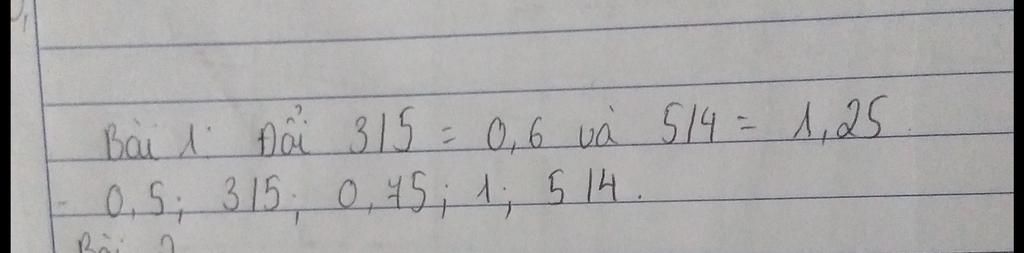 Bài 1: Đổi 3/5 = 0,6 và 5/4 = 1,25.
- 0,5; 3/5; 0,75; 1; 5/4.
Bài 2